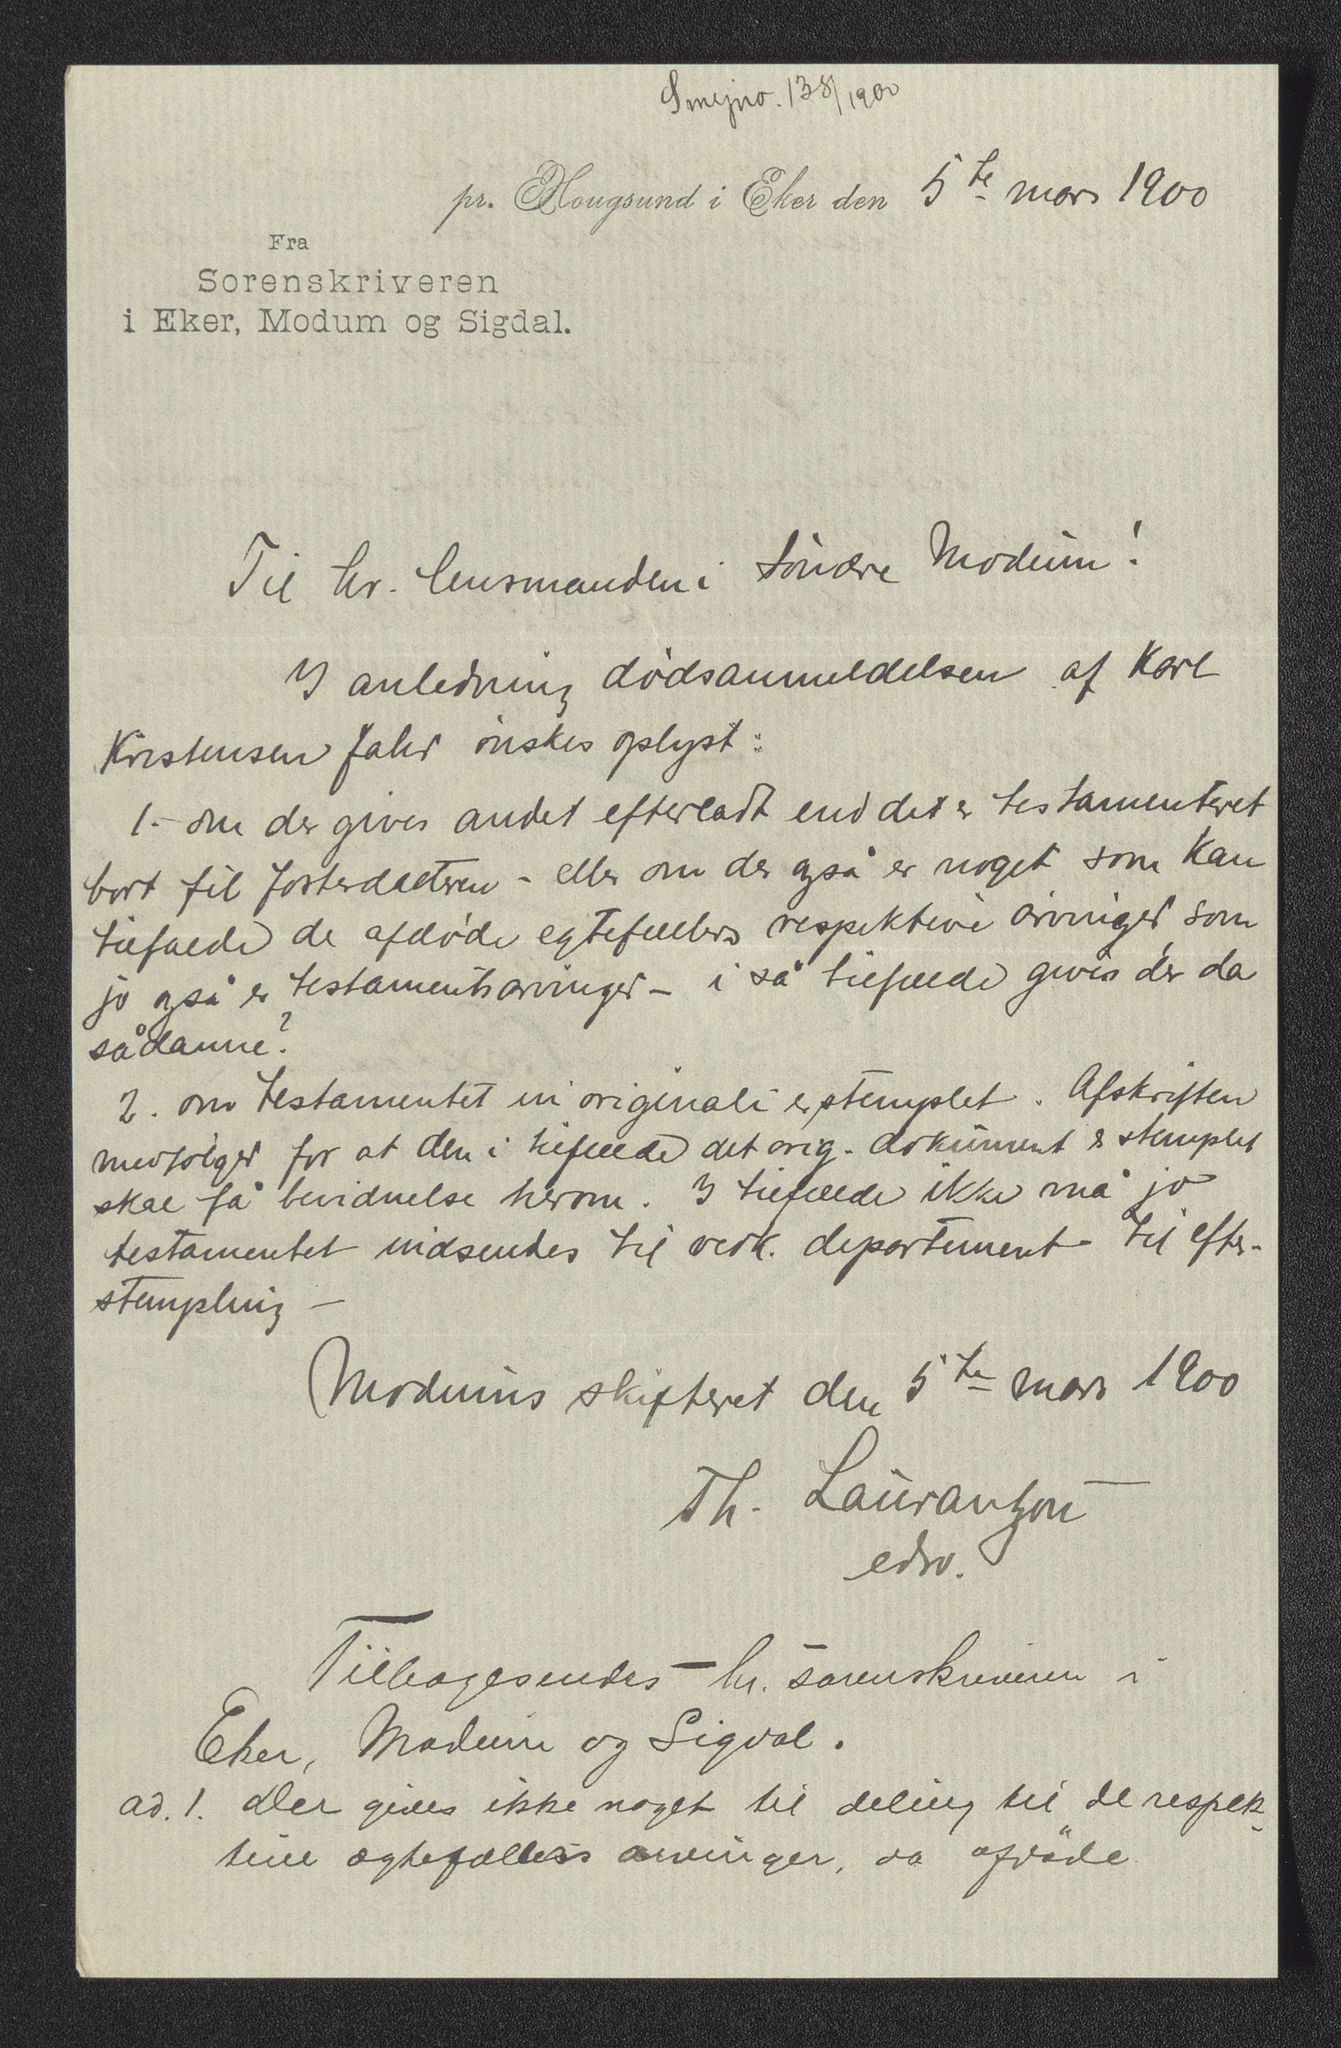 Smejno. 138/1900
pr. Hougsund i Eker den 5te mars 1900
Fra
Sorenskriveren
i Eker, Modum og Sigdal.
Til hr. lensmanden i Söndre Modum!
I anledning dødsanmeldelsen af Karl
Kristensen Jahr önskes oplyst:
1. om der gives andet efterladt end det er testamenteret
bort til fosterdatteren - eller om der også er noget som kan
tilfalde de afdøde egtefællers respektive arvinger som
jo også er testamentsarvinger - i så tilfælde gives der da
sådanne?
2. om testamentet in originali er stemplet. Afskriften
medfölger for at den i tilfælde det orig. dokument er stemplet
skal få bevidnelse herom. I tilfælde ikke må jo
testamentet indsendes til vedk. departement til efter-
stempling -
Modums skifteret den 5te mars 1900
Th. Laurantzon
edsv.
Tilbagesendes hr. sorenskriveren i
Eker, Modum og Sigdal.
ad. 1. Der gives ikke noget til deling til de respek-
tive ægtefællers arvinger, da afdøde